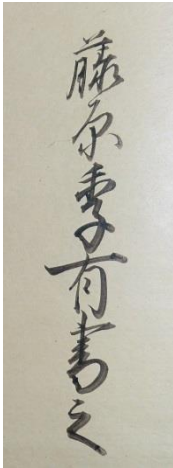 藤原季有書之